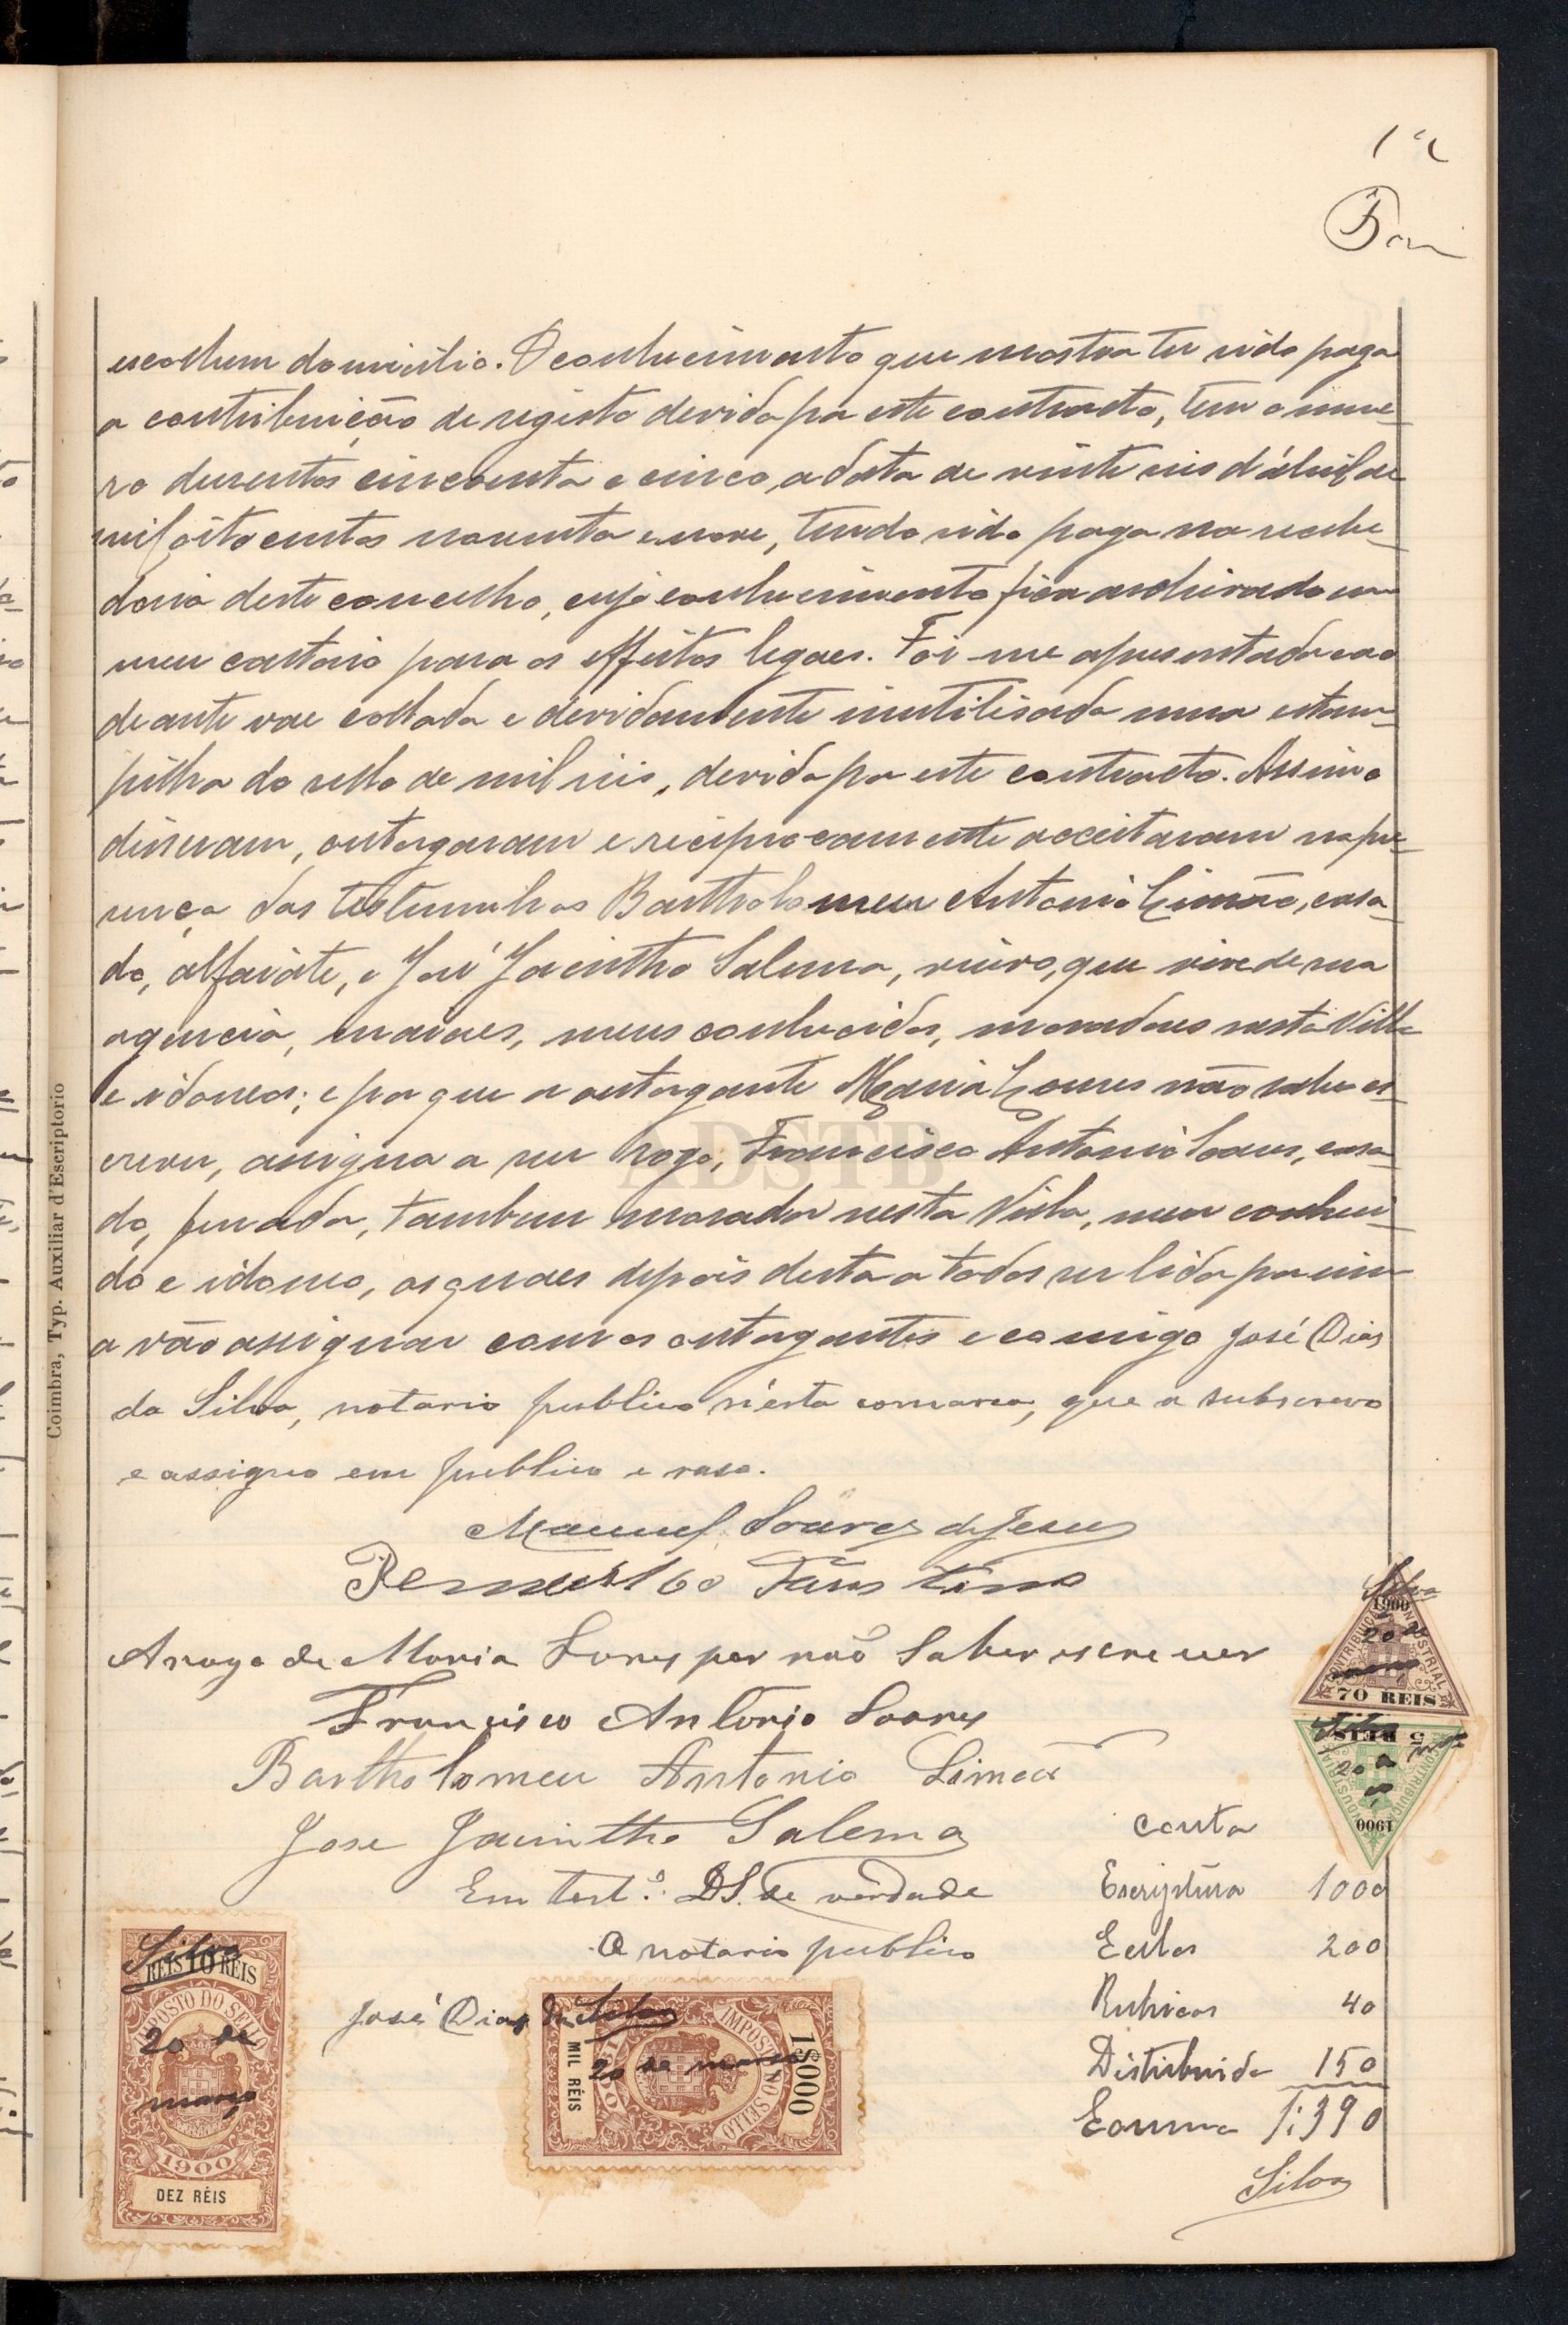 12
escolhem domicilio. O conhecimento que mostra ter sido paga
a contribuição de registo devida por este contracto, tem o nume-
ro duzentos cincoenta e cinco, a data de vinte seis d'abril de
mil oitocentos noventa e nove, tendo sido paga na recebe-
doria deste concelho, cujo conhecimento fica archivado em
meu cartorio para os effeitos legaes. Foi-me apresentada e ao
deante vae collada e devidamente inutilisada uma estam-
pilha do sello de mil reis, devida por este contracto. Assim o
disseram, outorgaram e reciprocamente acceitaram na pre-
sença das testemunhas Bartholomeu Antonio Limão, casa-
do, alfaiate, e José Jacintho Salema, viuvo, que vive de sua
agencia, maiores, meus conhecidos, moradores nesta Villa
e idoneos; e porque a outorgante Maria Soares não sabe es-
crever, assigna a seu rogo, Francisco Antonio Soares, casa-
do, ferrador, tambem morador nesta Villa, meu conheci-
do e idoneo, os quaes depois desta a todos ser lida por mim
a vão assignar com os outorgantes e comigo José Dias
da Silva, notario publico n'esta comarca, que a subscrevo
e assigno em publico e raso.
Manuel Soares de Jesus
Faustino
A rogo de Maria Soares por não Saber escrever
Francisco Antonio Soares
Bartholomeu Antonio Limão
Jose Jacintho Salema
Em test.º D.S. de verdade
O notario publico
José Dias da Silva
Conta
Escriptura 1000
Sellos 200
Rubricas 40
Distribuida 150
Somma 1:390
Silva
Silva
1900
20 de
março
CONTRIBUIÇÃO INDUSTRIAL
70 REIS
Silva
5 REIS
20 de
CONTRIBUIÇÃO INDUSTRIAL
1900
Silva
REIS 10 REIS
IMPOSTO DO SELLO
20 de
março
1900
DEZ RÉIS
IMPOSTO DO SELLO
1$000
20 de março
1900
MIL RÉIS
Coimbra, Typ. Auxiliar d'Escriptorio
ADSTB